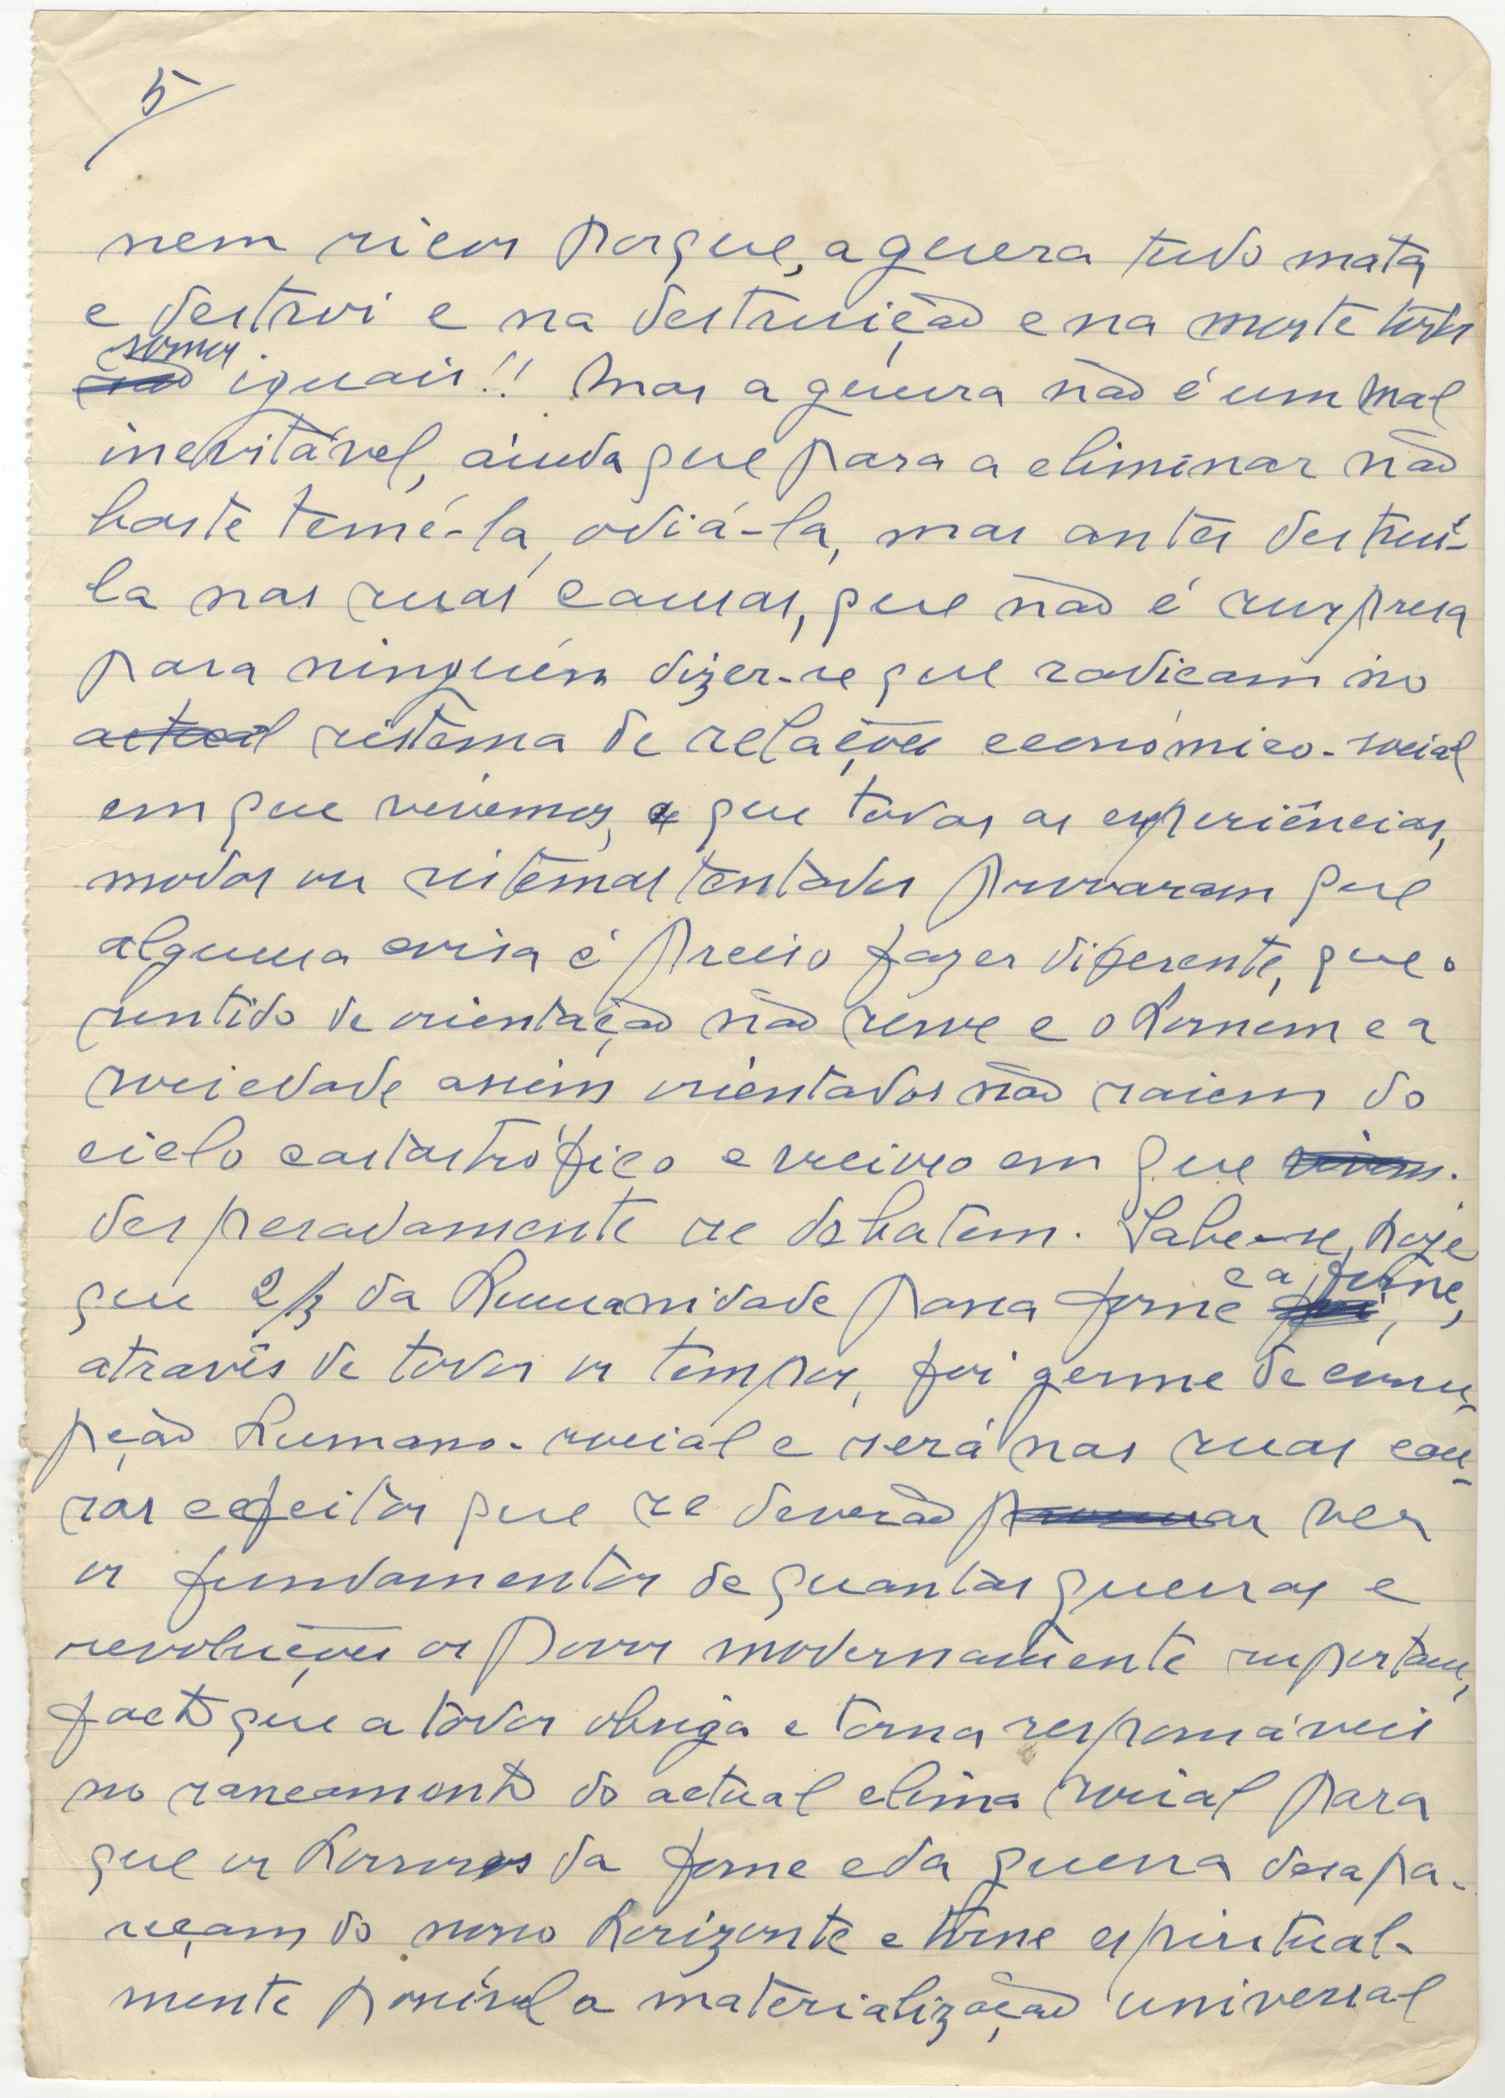 5
nem ricos porque, a guerra tudo mata
e destroi e na destruição e na morte todos
somos
são iguais!! Mas a guerra não é um mal
inevitável, ainda que para a eliminar não
baste temê-la, odiá-la, mas antes destruí-
la nas suas causas, que não é surpresa
para ninguém dizer-se que radicam no
actual sistema de relações económico-social
em que vivemos, e que todas as experiências,
modos ou sistemas tentados provaram que
alguma coisa é preciso fazer diferente, que o
sentido de orientação não serve e o homem e a
sociedade assim orientados não saiem do
ciclo castastrófico e vicioso em que vivem.
desperadamente se debatem. Sabe-se, hoje
e a fome,
que 2/3 da humanidade passa fome que,
através de todos os tempos, foi germe de corru-
pção humano-social e será nas suas cau-
sas e efeitos que se deverão procurar ver
os fundamentos de quantas guerras e
revoluções os povos modernamente suportam,
facto que a todos obriga e torna responsáveis
no saneamento do actual clima social para
que os horrores da fome e da guerra desapa-
reçam do nosso horizonte e torne espiritual-
mente possível a materialização universal